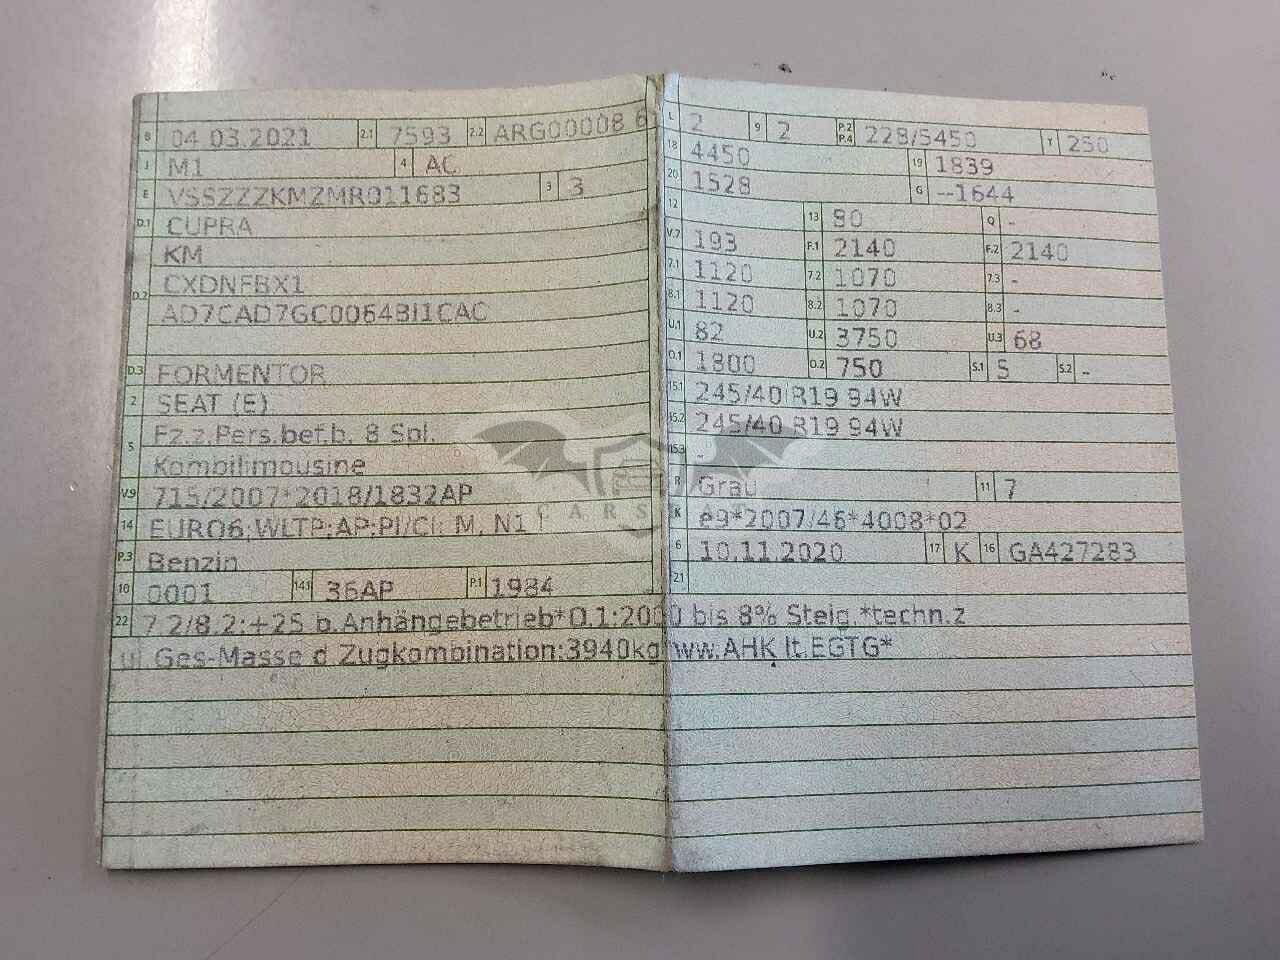 B 04.03.2021 2.1 7593 2.2 ARG00008 6
J M1 4 AC
E VSSZZZKMZMR011683 3 3
D.1 CUPRA
D.2 KM
CXDNFBX1
AD7CAD7GC0064BI1CAC
D.3 FORMENTOR
2 SEAT (E)
5 Fz.z.Pers.bef.b. 8 Spl.
Kombilimousine
V.9 715/2007*2018/1832AP
14 EURO6;WLTP;AP;PI/CI; M, N1 I
P.3 Benzin
10 0001 14.1 36AP P.1 1984
L 2 9 2 P.2 P.4 228/5450 T 250
18 4450 19 1839
20 1528 G --1644
12 13 90 Q -
V.7 193 F.1 2140 F.2 2140
7.1 1120 7.2 1070 7.3 -
8.1 1120 8.2 1070 8.3 -
U.1 82 U.2 3750 U.3 68
O.1 1800 O.2 750 S.1 5 S.2 -
15.1 245/40 R19 94W
15.2 245/40 R19 94W
15.3 -
R Grau 11 7
K e9*2007/46*4008*02
6 10.11.2020 17 K 16 GA427283
21
22 7.2/8.2:+25 b.Anhängebetrieb*O.1:2000 bis 8% Steig.*techn.z
ul Ges-Masse d Zugkombination:3940kg*ww.AHK lt.EGTG*
CARS